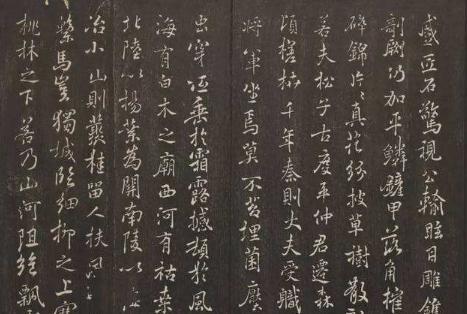 感匠石驚視公輸眩目雕鐫
剞劂仍加平鱗鏟甲落角摧
碎錦片〻真花紛披草樹散
若夫松子古度平仲君遷森
頃槎枿千年秦則大夫受職
將軍坐焉莫不苔埋菌壓
虫穿低垂於霜露撼頓於風
海有白木之廟西河有枯桑
北陸以楊葉為關南陵以
冶小山則叢桂留人扶風
繫馬豈獨城臨細柳之上塞
桃林之下若乃山河阻絕飄